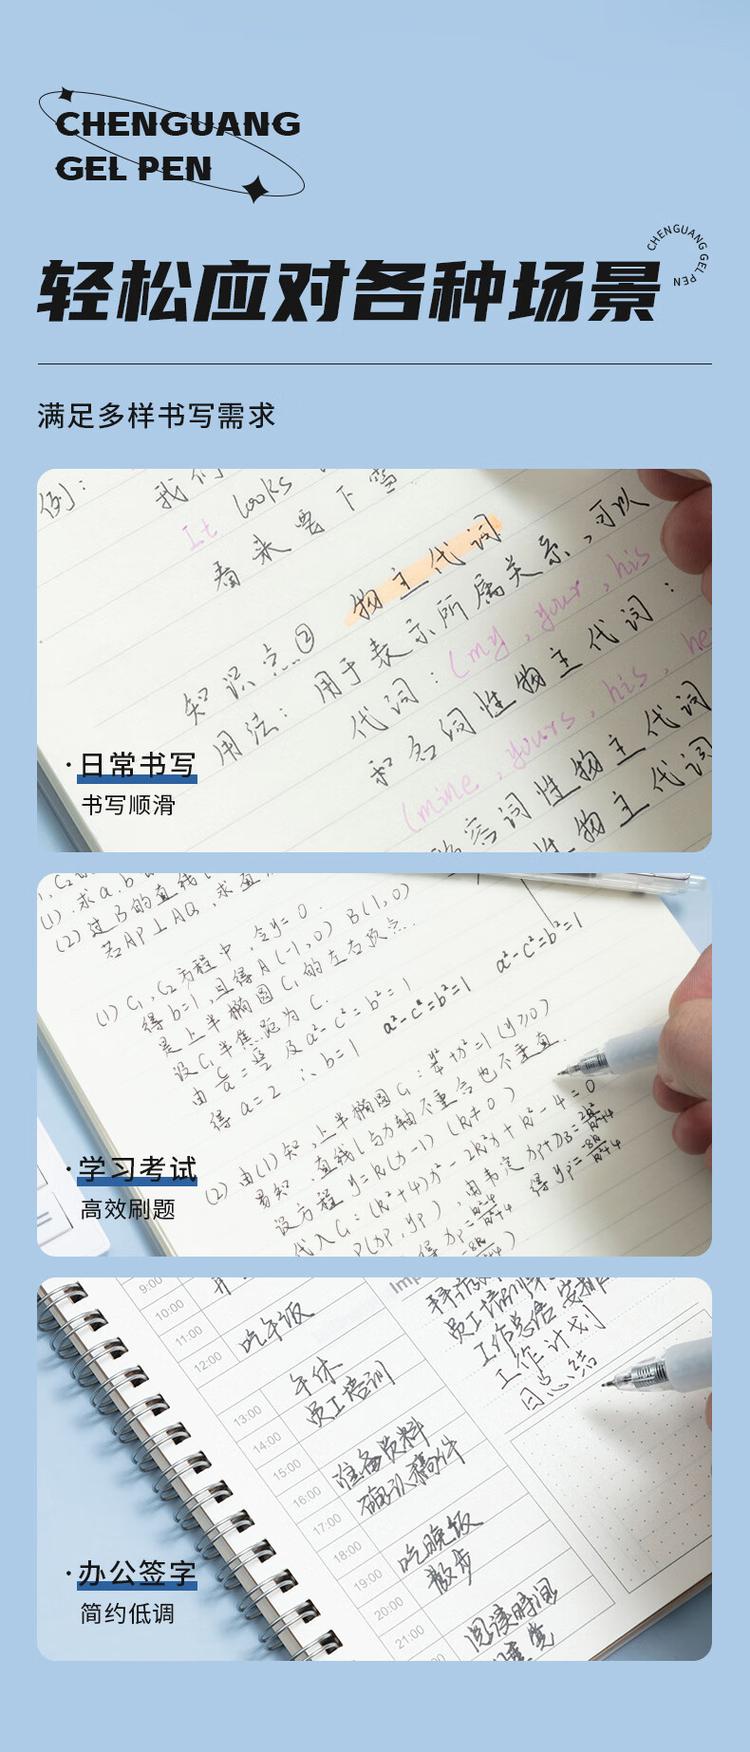 CHENGUANG
GEL PEN
CHENGUANG GEL PEN
轻松应对各种场景
满足多样书写需求
例：
我们
It looks
看来要下雪
知识点② 物主代词
用法：用于表示所属关系，可以
代词：(my, your, his
和名词性物主代词：
(mine, yours, his, he
容词性物主代词
性物主代词
·日常书写
书写顺滑
(1).求a.b
(2)过B的直线
若AP⊥AQ，求直
(1) C₁,C₂方程中，令y=0.
得b=1,且得A(-1,0) B(1,0)
是上半椭圆C₁的左右顶点.
设C₁半焦距为C.
由 及a²-c²=b²=1 a²-c²=b²=1 a²-c²=b²=1
得a=2 ∴b=1
(2)由(1)知,上半椭圆C₁: +x²=1(y≥0)
易知,直线l与x轴不重合也不垂直.
设方程 y=k(x-1) (k≠0)
代入C₁:(k²+4)x²-2k²x+k²-4=0
P(xp,yp)
·学习考试
高效刷题
9:00
10:00
11:00
12:00 吃午饭
午休
13:00 员工培训
14:00
15:00 准备资料
16:00 确认稿件
17:00
18:00 吃晚饭
19:00 散步
20:00
21:00 阅读时间
Imp
员工培训
工作总结 安排
工作计划
日总结
·办公签字
简约低调